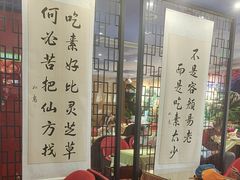 吃素好比灵芝草
何必苦把仙方找
不是容颜易老
而是吃素太少